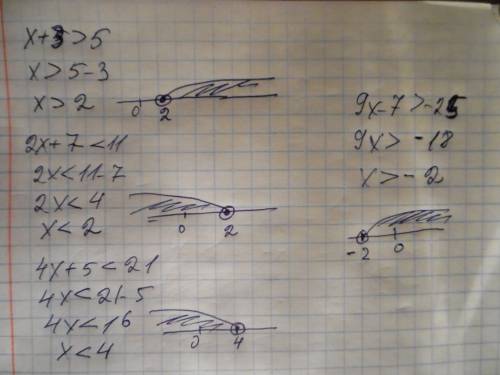 x+3>5
x>5-3
x>2
0 2
2x+7<11
2x<11-7
2x<4
x<2
0 2
4x+5<21
4x<21-5
4x<16
x<4
0 4
9x-7>-25
9x>-18
x>-2
-2 0